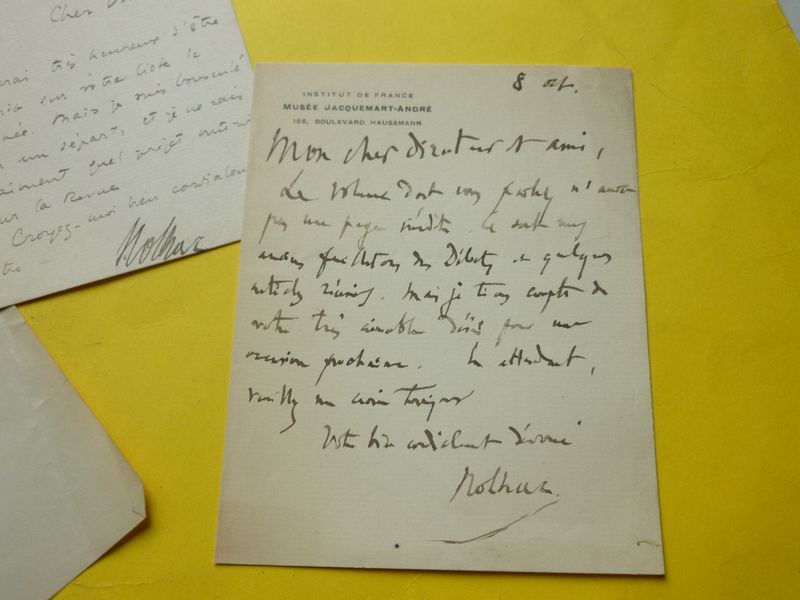 Cher
serai très heureux d'être
sur votre liste le
mais je suis bousculé
un départ, et je ne sais
vraiment quel projet
sur la Revue
Croyez-moi bien cordialement
Nolhac
8 oct.
INSTITUT DE FRANCE
MUSÉE JACQUEMART-ANDRÉ
158, BOULEVARD HAUSSMANN
Mon cher directeur et ami,
Le volume dont vous parlez n'aura
pas une page inédite. Ce sont mes
anciens feuilletons des Débats et quelques
articles réunis. Mais je tiens compte de
votre très aimable désir pour une
occasion prochaine. En attendant,
veuillez me croire toujours
Votre bien cordialement dévoué
Nolhac.